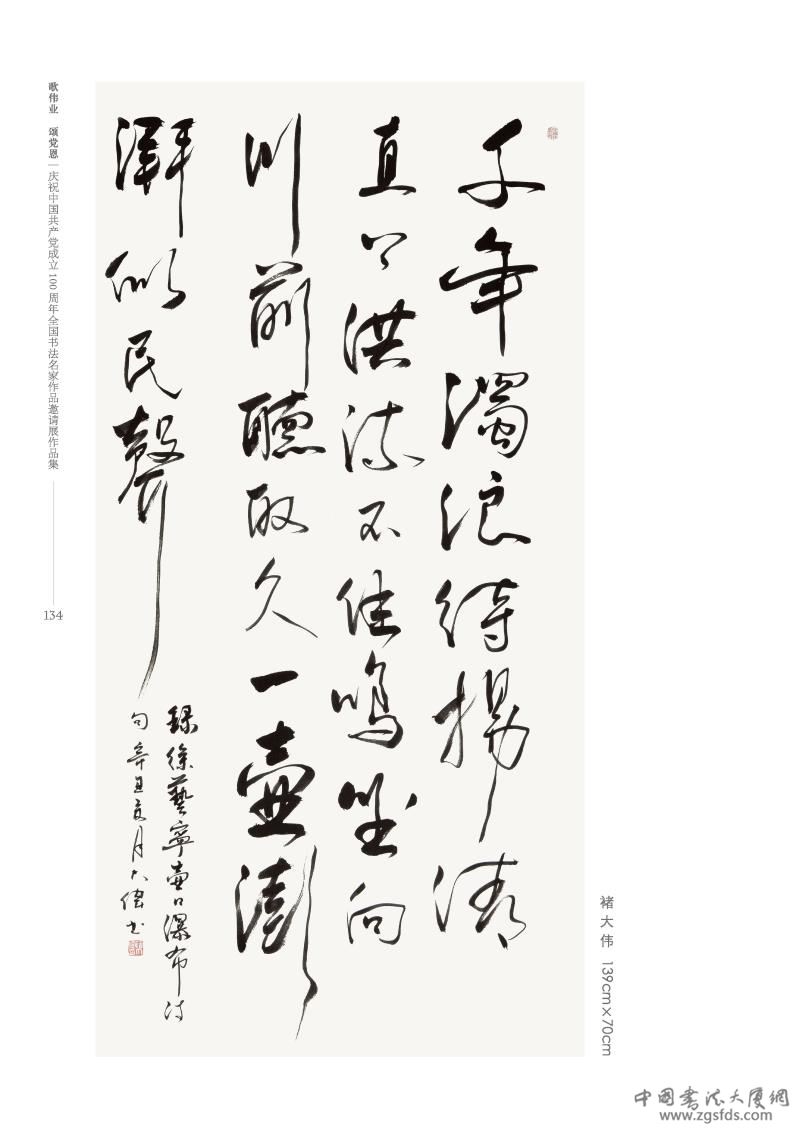 千年濁浪待揚清
直下洪流不住鳴坐向
川前聽取久一壺澎
湃似民聲
録徐藝寧壺口瀑布詩
句辛丑夏月大偉书
歌伟业 颂党恩|庆祝中国共产党成立100周年全国书法名家作品邀请展作品集
134
褚大伟 139cm×70cm
中国书法大厦網
www.zgsfds.com